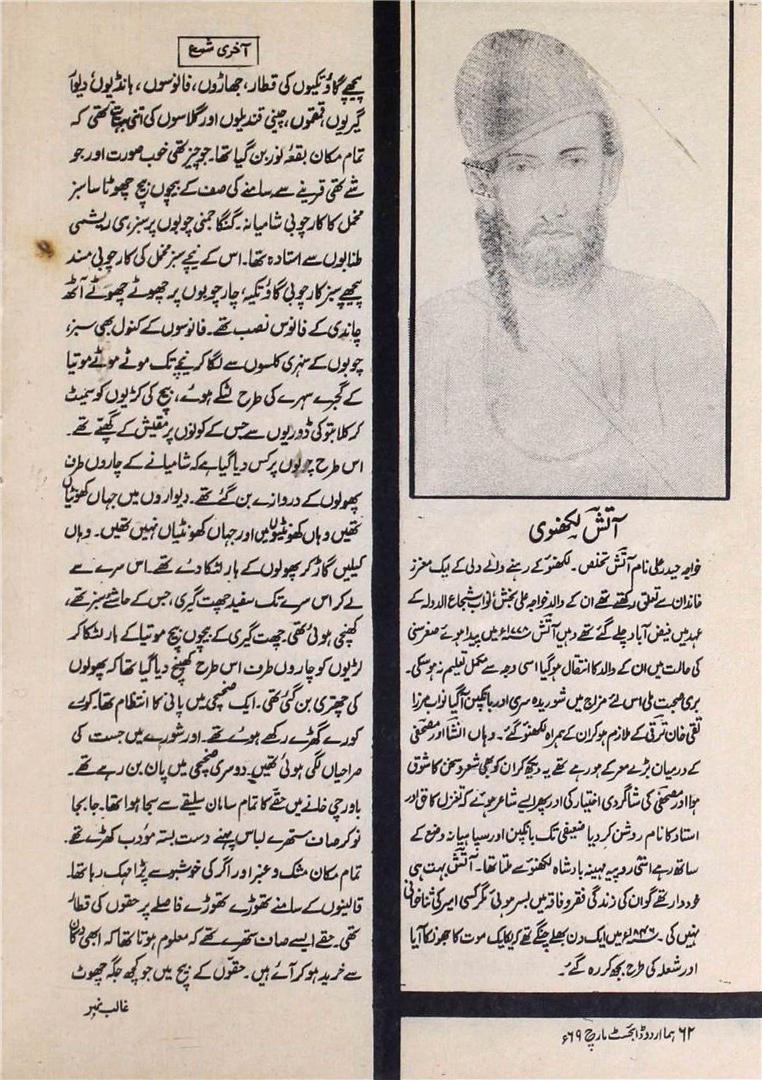 آتشؔ لکھنوی
خواجہ حیدر علی نام آتشؔ تخلص۔ لکھنؤ کے رہنے والے دلی کے ایک معزز
خاندان سے تعلق رکھتے تھے ان کے والد خواجہ علی بخش نواب شجاع الدولہ کے
عہد میں فیض آباد چلے گئے تھے وہیں آتشؔ ۱۷۷۸ء میں پیدا ہوئے صغر سنی
کی حالت میں ان کے والد کا انتقال ہوگیا اسی وجہ سے مکمل تعلیم نہ ہوسکی۔
بری صحبت ملی اس لئے مزاج میں شوریدہ سری اور بانکپن آگیا نواب مرزا
تقی خان ترقی کے ملازم ہوکر ان کے ہمراہ لکھنؤ گئے۔ وہاں انشاؔ اور مصحفیؔ
کے درمیان بڑے معرکے ہورہے تھے یہ دیکھ کر ان کو بھی شعر و سخن کا شوق
ہوا اور مصحفیؔ کی شاگردی اختیار کی اور پھر ایسے شاعر ہوئے کہ تغزل کا حق اور
استاد کا نام روشن کر دیا ضعیفی تک بانکپن اور سپاہیانہ وضع کے
ساتھ رہے اسّی روپیہ مہینہ بادشاہ لکھنؤ سے ملتا تھا۔ آتشؔ بہت ہی
خوددار تھے گو ان کی زندگی فقر و فاقہ میں بسر ہوئی مگر کسی امیر کی ثنا خوانی
نہیں کی۔ ۱۸۴۶ء میں ایک دن بھلے چنگے تھے کہ یکایک موت کا جھونکا آیا
اور شعلہ کی طرح بجھ کر رہ گئے۔
۶۲ ہما اردو ڈائجسٹ مارچ ۶۹ء
آخری شمع
پیچھے گاؤ تکیوں کی قطار، جھاڑوں، فانوسوں، ہانڈیوں، دیوار
گیریوں، قمقموں، چینی قندیلوں اور گلاسوں کی اتنی بہتات تھی کہ
تمام مکان بقعۂ نور بن گیا تھا۔ جو چیز تھی خوب صورت اور جو
شے تھی قرینے سے سامنے کی صف کے بیچوں بیچ چھوٹا سا سبز
مخمل کا کارچوبی شامیانہ۔ گنگا جمنی چوبوں پر سبز ہی ریشمی
طنابوں سے استادہ تھا۔ اس کے نیچے سبز مخمل کی کارچوبی مسند
پیچھے سبز کارچوبی گاؤ تکیہ، چار چوبوں پر چھوٹے چھوٹے آٹھ
چاندی کے فانوس نصب تھے۔ فانوسوں کے کنول بھی سبز،
چوبوں کے سنہری کلسوں سے لگا کر نیچے تک موٹے موٹے موتیا
کے گجرے سہرے کی طرح لٹکے ہوئے، بیچ کی لڑیوں کو سمیٹ
کر کلابتو کی ڈوریوں سے جس کے کونوں پر مقیش کے گچھے تھے۔
اس طرح چوبوں پر کس دیا گیا ہے کہ شامیانے کے چاروں طرف
پھولوں کے دروازے بن گئے تھے۔ دیواروں میں جہاں کھونٹیاں
تھیں وہاں کھونٹیوں میں اور جہاں کھونٹیاں نہیں تھیں۔ وہاں
کیلیں گاڑ کر پھولوں کے ہار لٹکا دئے تھے۔ اس سرے سے
لے کر اس سرے تک سفید چھت گیری، جس کے حاشئے سبز تھے،
کھنچی ہوئی تھی۔ چھت گیری کے بیچوں بیچ موتیا کے ہار لٹکا کر
لڑیوں کو چاروں طرف اس طرح کھینچ دیا گیا تھا کہ پھولوں
کی چھتری بن گئی تھی۔ ایک صحنچی میں پانی کا انتظام تھا۔ کورے
کورے گھڑے رکھے ہوئے تھے۔ اور شورے میں جست کی
صراحیاں لگی ہوئی تھیں۔ دوسری صحنچی میں پان بن رہے تھے۔
باورچی خانے میں حقّے کا تمام سامان سلیقے سے سجا ہوا تھا۔ جا بجا
نوکر صاف ستھرے لباس پہنے دست بستہ مودب کھڑے تھے۔
تمام مکان مشک و عنبر اور اگر کی خوشبو سے پڑا مہک رہا تھا۔
قالینوں کے سامنے تھوڑے تھوڑے فاصلے پر حقوں کی قطار
تھی۔ حقے ایسے صاف ستھرے تھے کہ معلوم ہوتا تھا کہ ابھی دکان
سے خرید ہو کر آئے ہیں۔ حقّوں کے بیچ میں جو کچھ جگہ چھوٹ
غالب نمبر